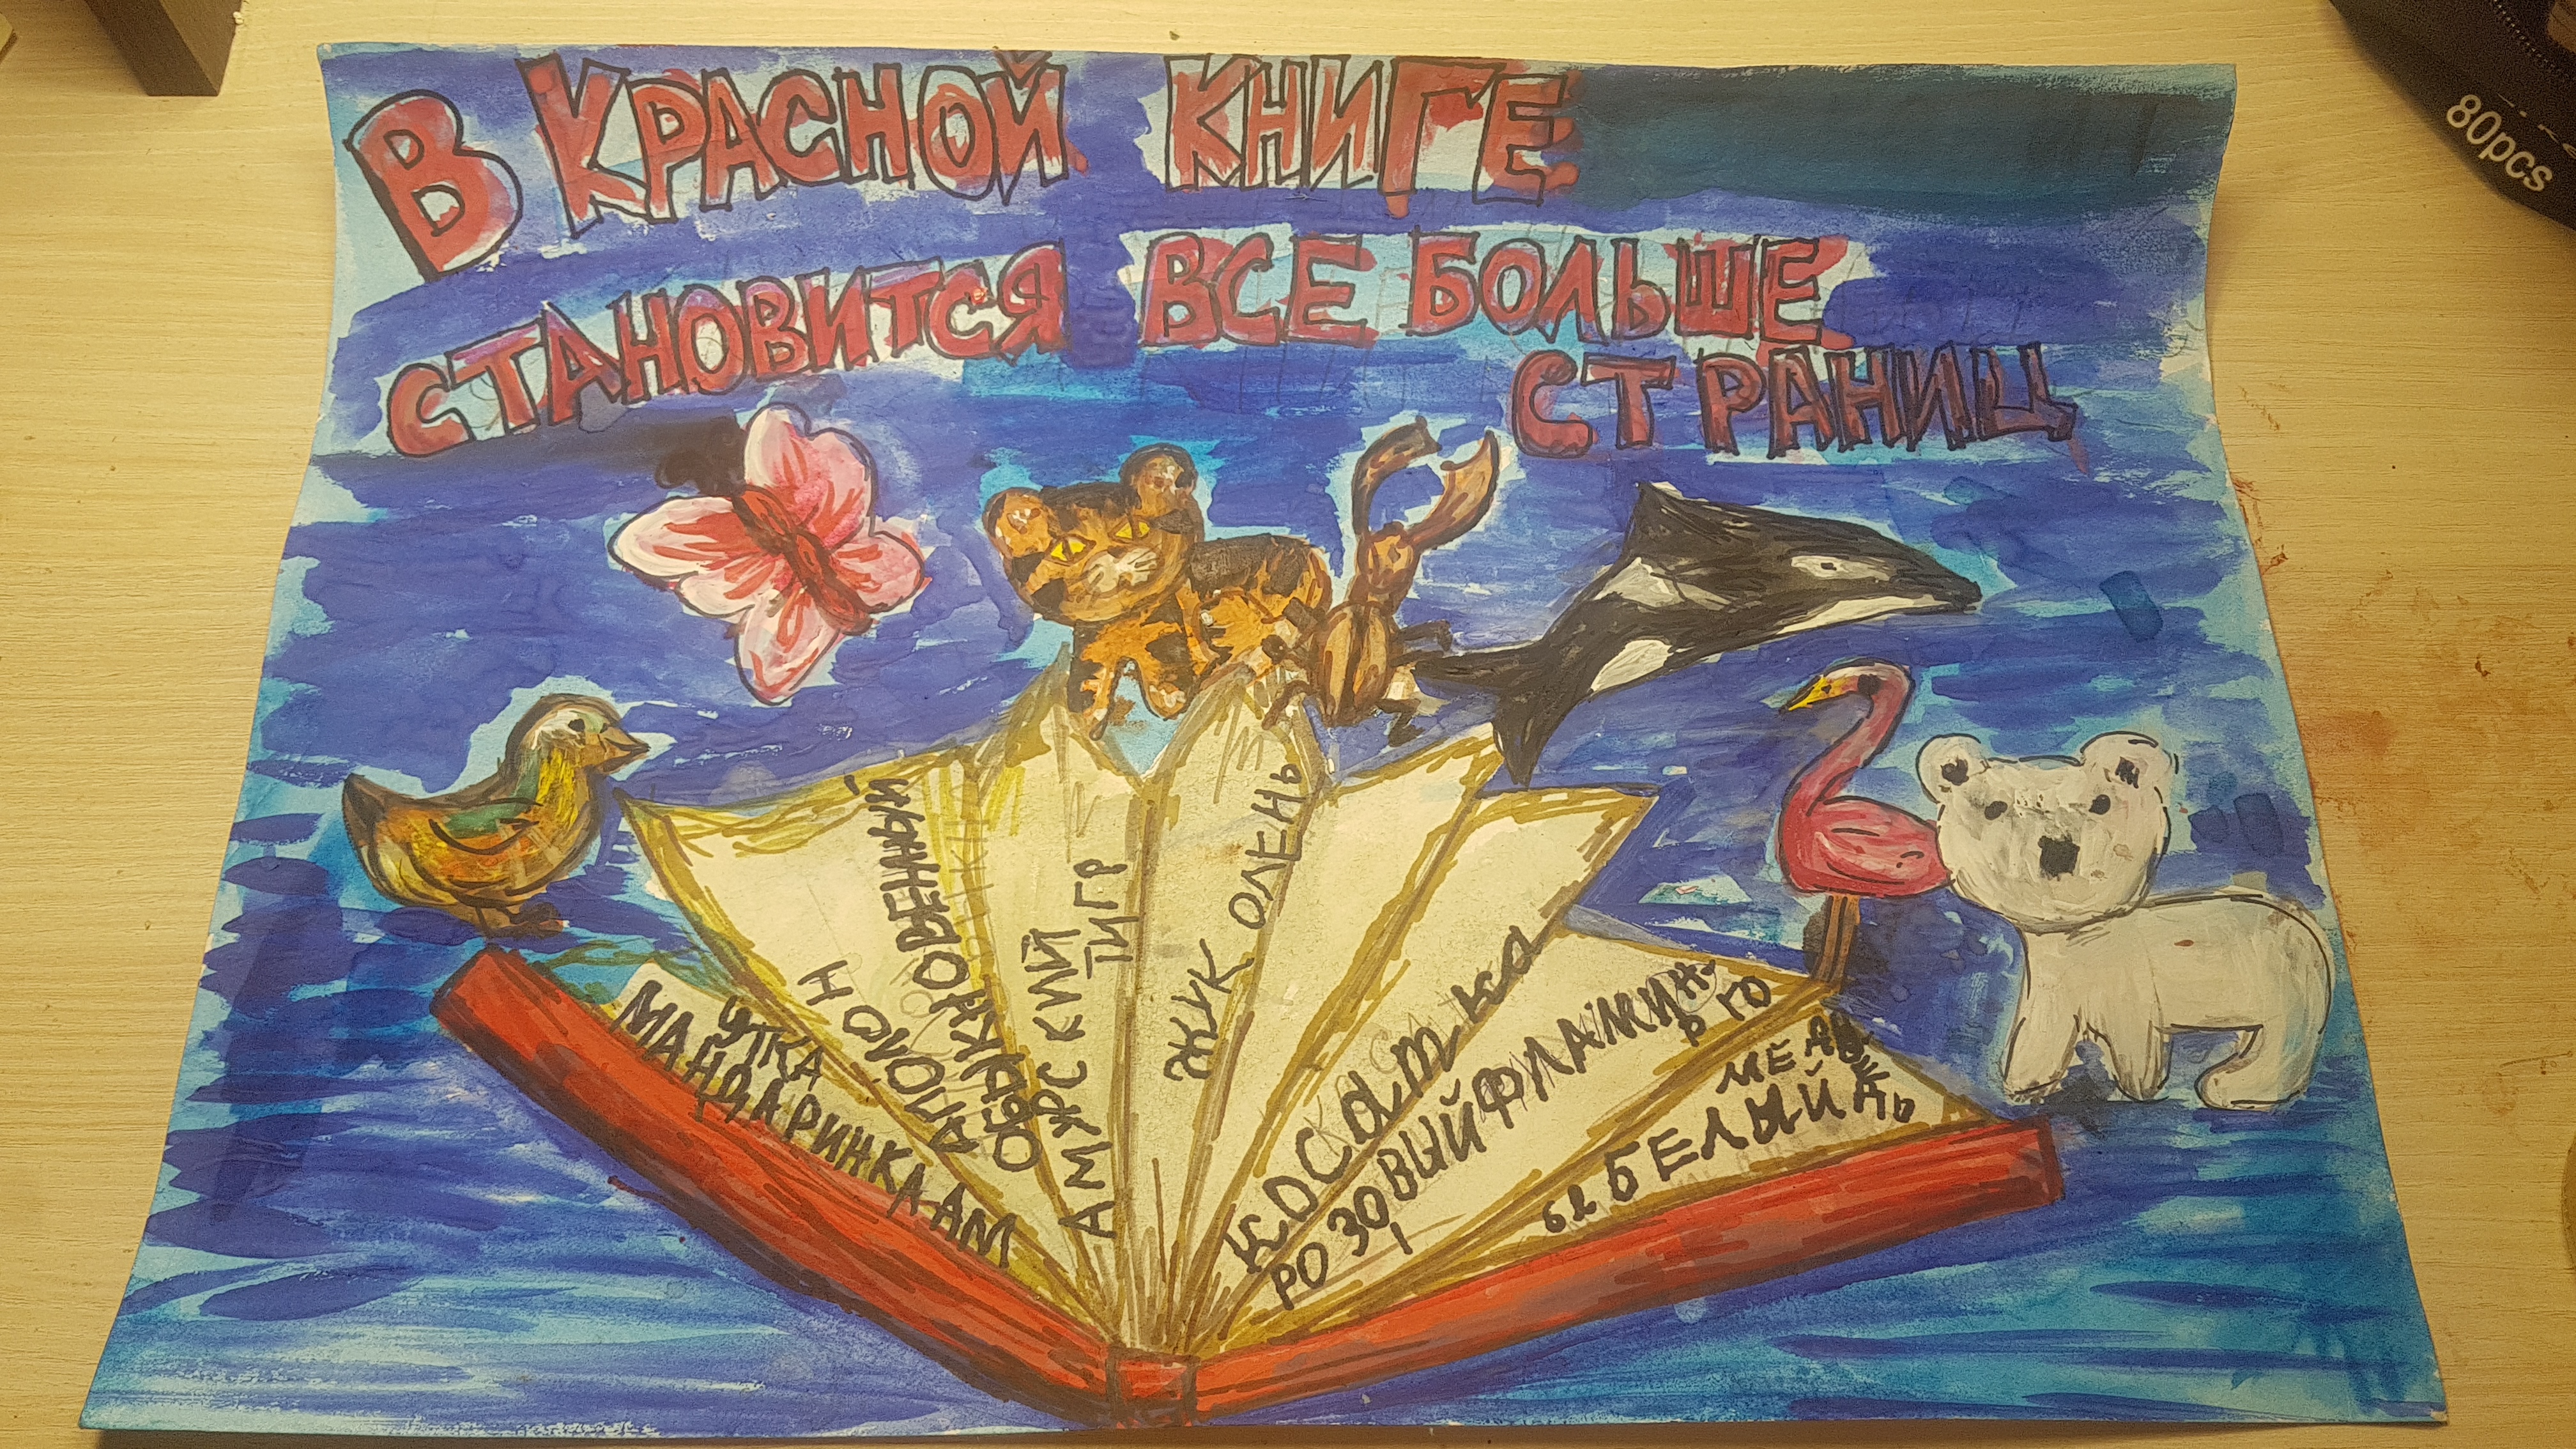 В КРАСНОЙ КНИГЕ
СТАНОВИТСЯ ВСЕ БОЛЬШЕ
СТРАНИЦ
80pcs
УТКА
МАНДАРИНКА
АПОЛЛОН
ОБЫКНОВЕННЫЙ
АМУРСКИЙ
ТИГР
ЖУК ОЛЕНЬ
Косатка
РОЗОВЫЙ ФЛАМИН-
ГО
БЕЛЫЙ
МЕДВЕДЬ